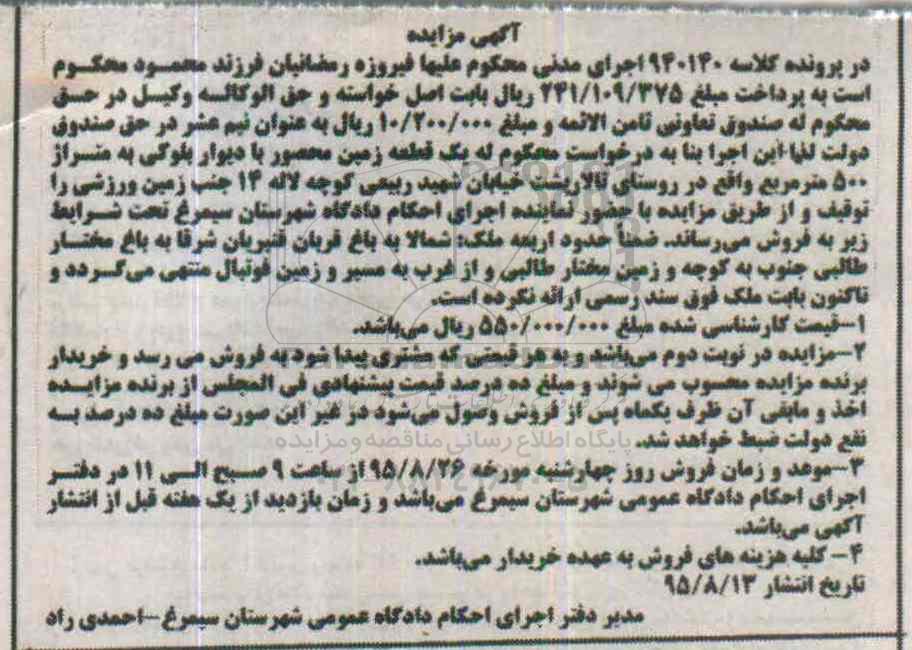 آگهی مزایده
در پرونده کلاسه ۹۴۰۱۴۰ اجرای مدنی محکوم علیها فیروزه رمضانیان فرزند محمود محکوم
است به پرداخت مبلغ ۲۴۱/۱۰۹/۳۷۵ ریال بابت اصل خواسته و حق الوکاله وکیل در حق
محکوم له صندوق تعاونی ثامن الائمه و مبلغ ۱۰/۲۰۰/۰۰۰ ریال به عنوان نیم عشر در حق صندوق
دولت لذا این اجرا بنا به درخواست محکوم له یک قطعه زمین محصور با دیوار بلوکی به متراژ
۵۰۰ مترمربع واقع در روستای تالارپشت خیابان شهید ربیعی کوچه لاله ۱۴ جنب زمین ورزشی را
توقیف و از طریق مزایده با حضور نماینده اجرای احکام دادگاه شهرستان سیمرغ تحت شرایط
زیر به فروش می‌رساند. ضمنا حدود اربعه ملک: شمالا به باغ قربان قنبریان شرقا به باغ مختار
طالبی جنوب به کوچه و زمین مختار طالبی و از غرب به مسیر و زمین فوتبال منتهی می‌گردد و
تاکنون بابت ملک فوق سند رسمی ارائه نکرده است.
۱-قیمت کارشناسی شده مبلغ ۵۵۰/۰۰۰/۰۰۰ ریال می‌باشد.
۲-مزایده در نوبت دوم می‌باشد و به هر قیمتی که مشتری پیدا شود به فروش می رسد و خریدار
برنده مزایده محسوب می شوند و مبلغ ده درصد قیمت پیشنهادی فی المجلس از برنده مزایده
اخذ و مابقی آن ظرف یکماه پس از فروش وصول می‌شود در غیر این صورت مبلغ ده درصد به
نفع دولت ضبط خواهد شد.
پایگاه اطلاع رسانی مناقصه و مزایده
۳-موعد و زمان فروش روز چهارشنبه مورخه ۹۵/۸/۲۶ از ساعت ۹ صبح الی ۱۱ در دفتر
اجرای احکام دادگاه عمومی شهرستان سیمرغ می‌باشد و زمان بازدید از یک هفته قبل از انتشار
آگهی می‌باشد.
۴- کلیه هزینه های فروش به عهده خریدار می‌باشد.
تاریخ انتشار ۹۵/۸/۱۳
مدیر دفتر اجرای احکام دادگاه عمومی شهرستان سیمرغ-احمدی راد